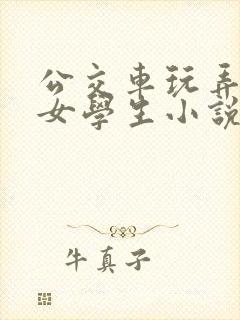 公交車玩弄
女學生小說
牛真子